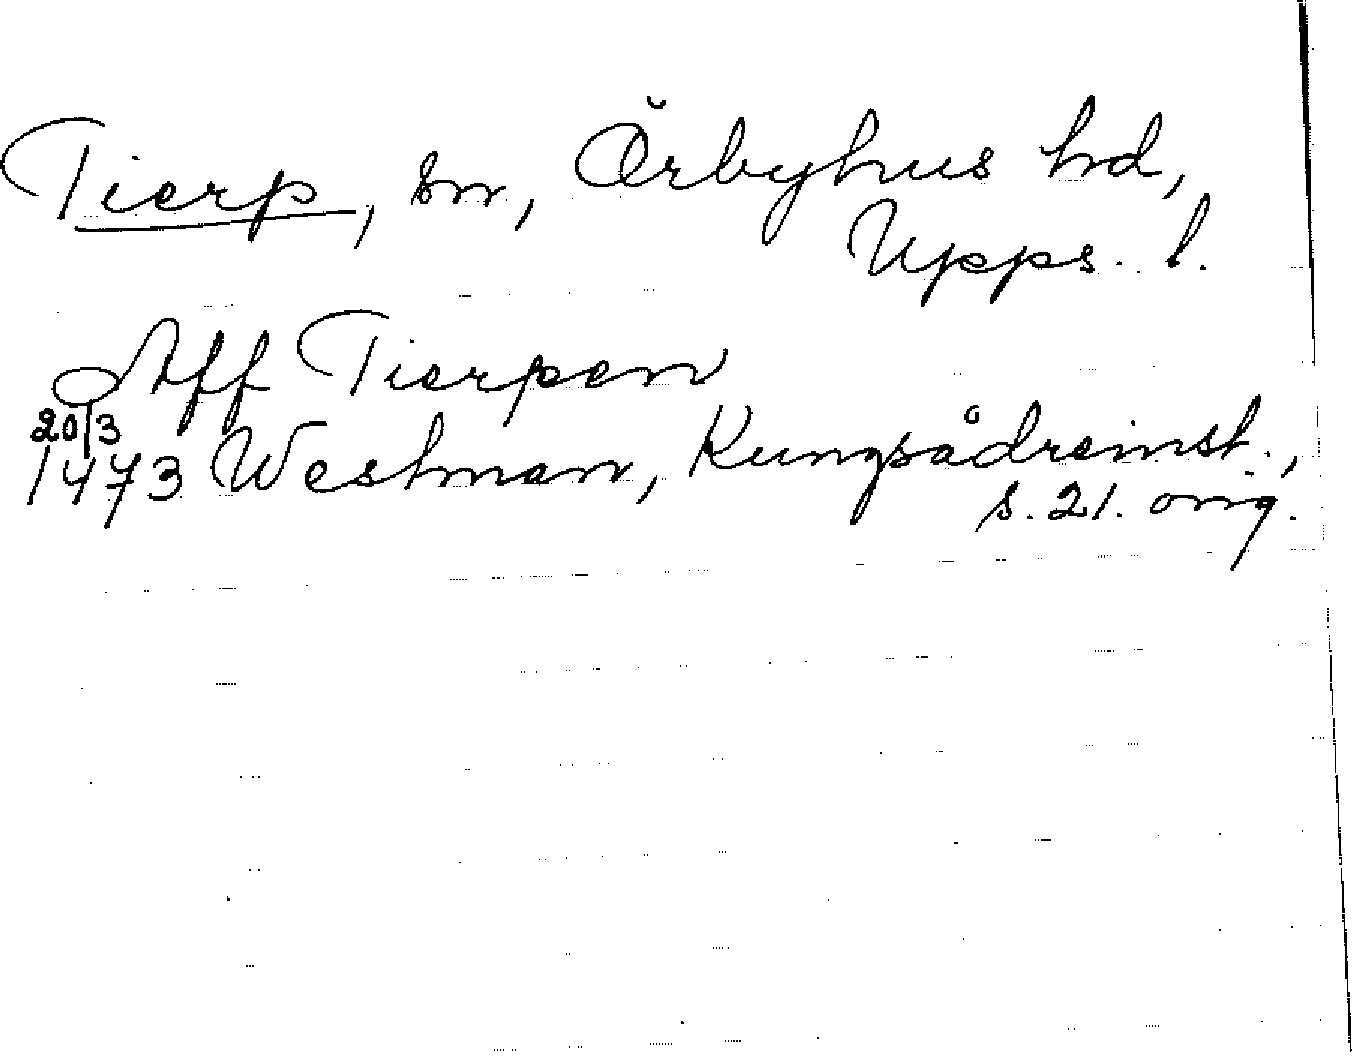 Tierp, sn, Örbyhus hd,
Upps. l.
Aff Tierpen
20/3
1473 Westman, Kungsådreinst.,
s. 21. orig.